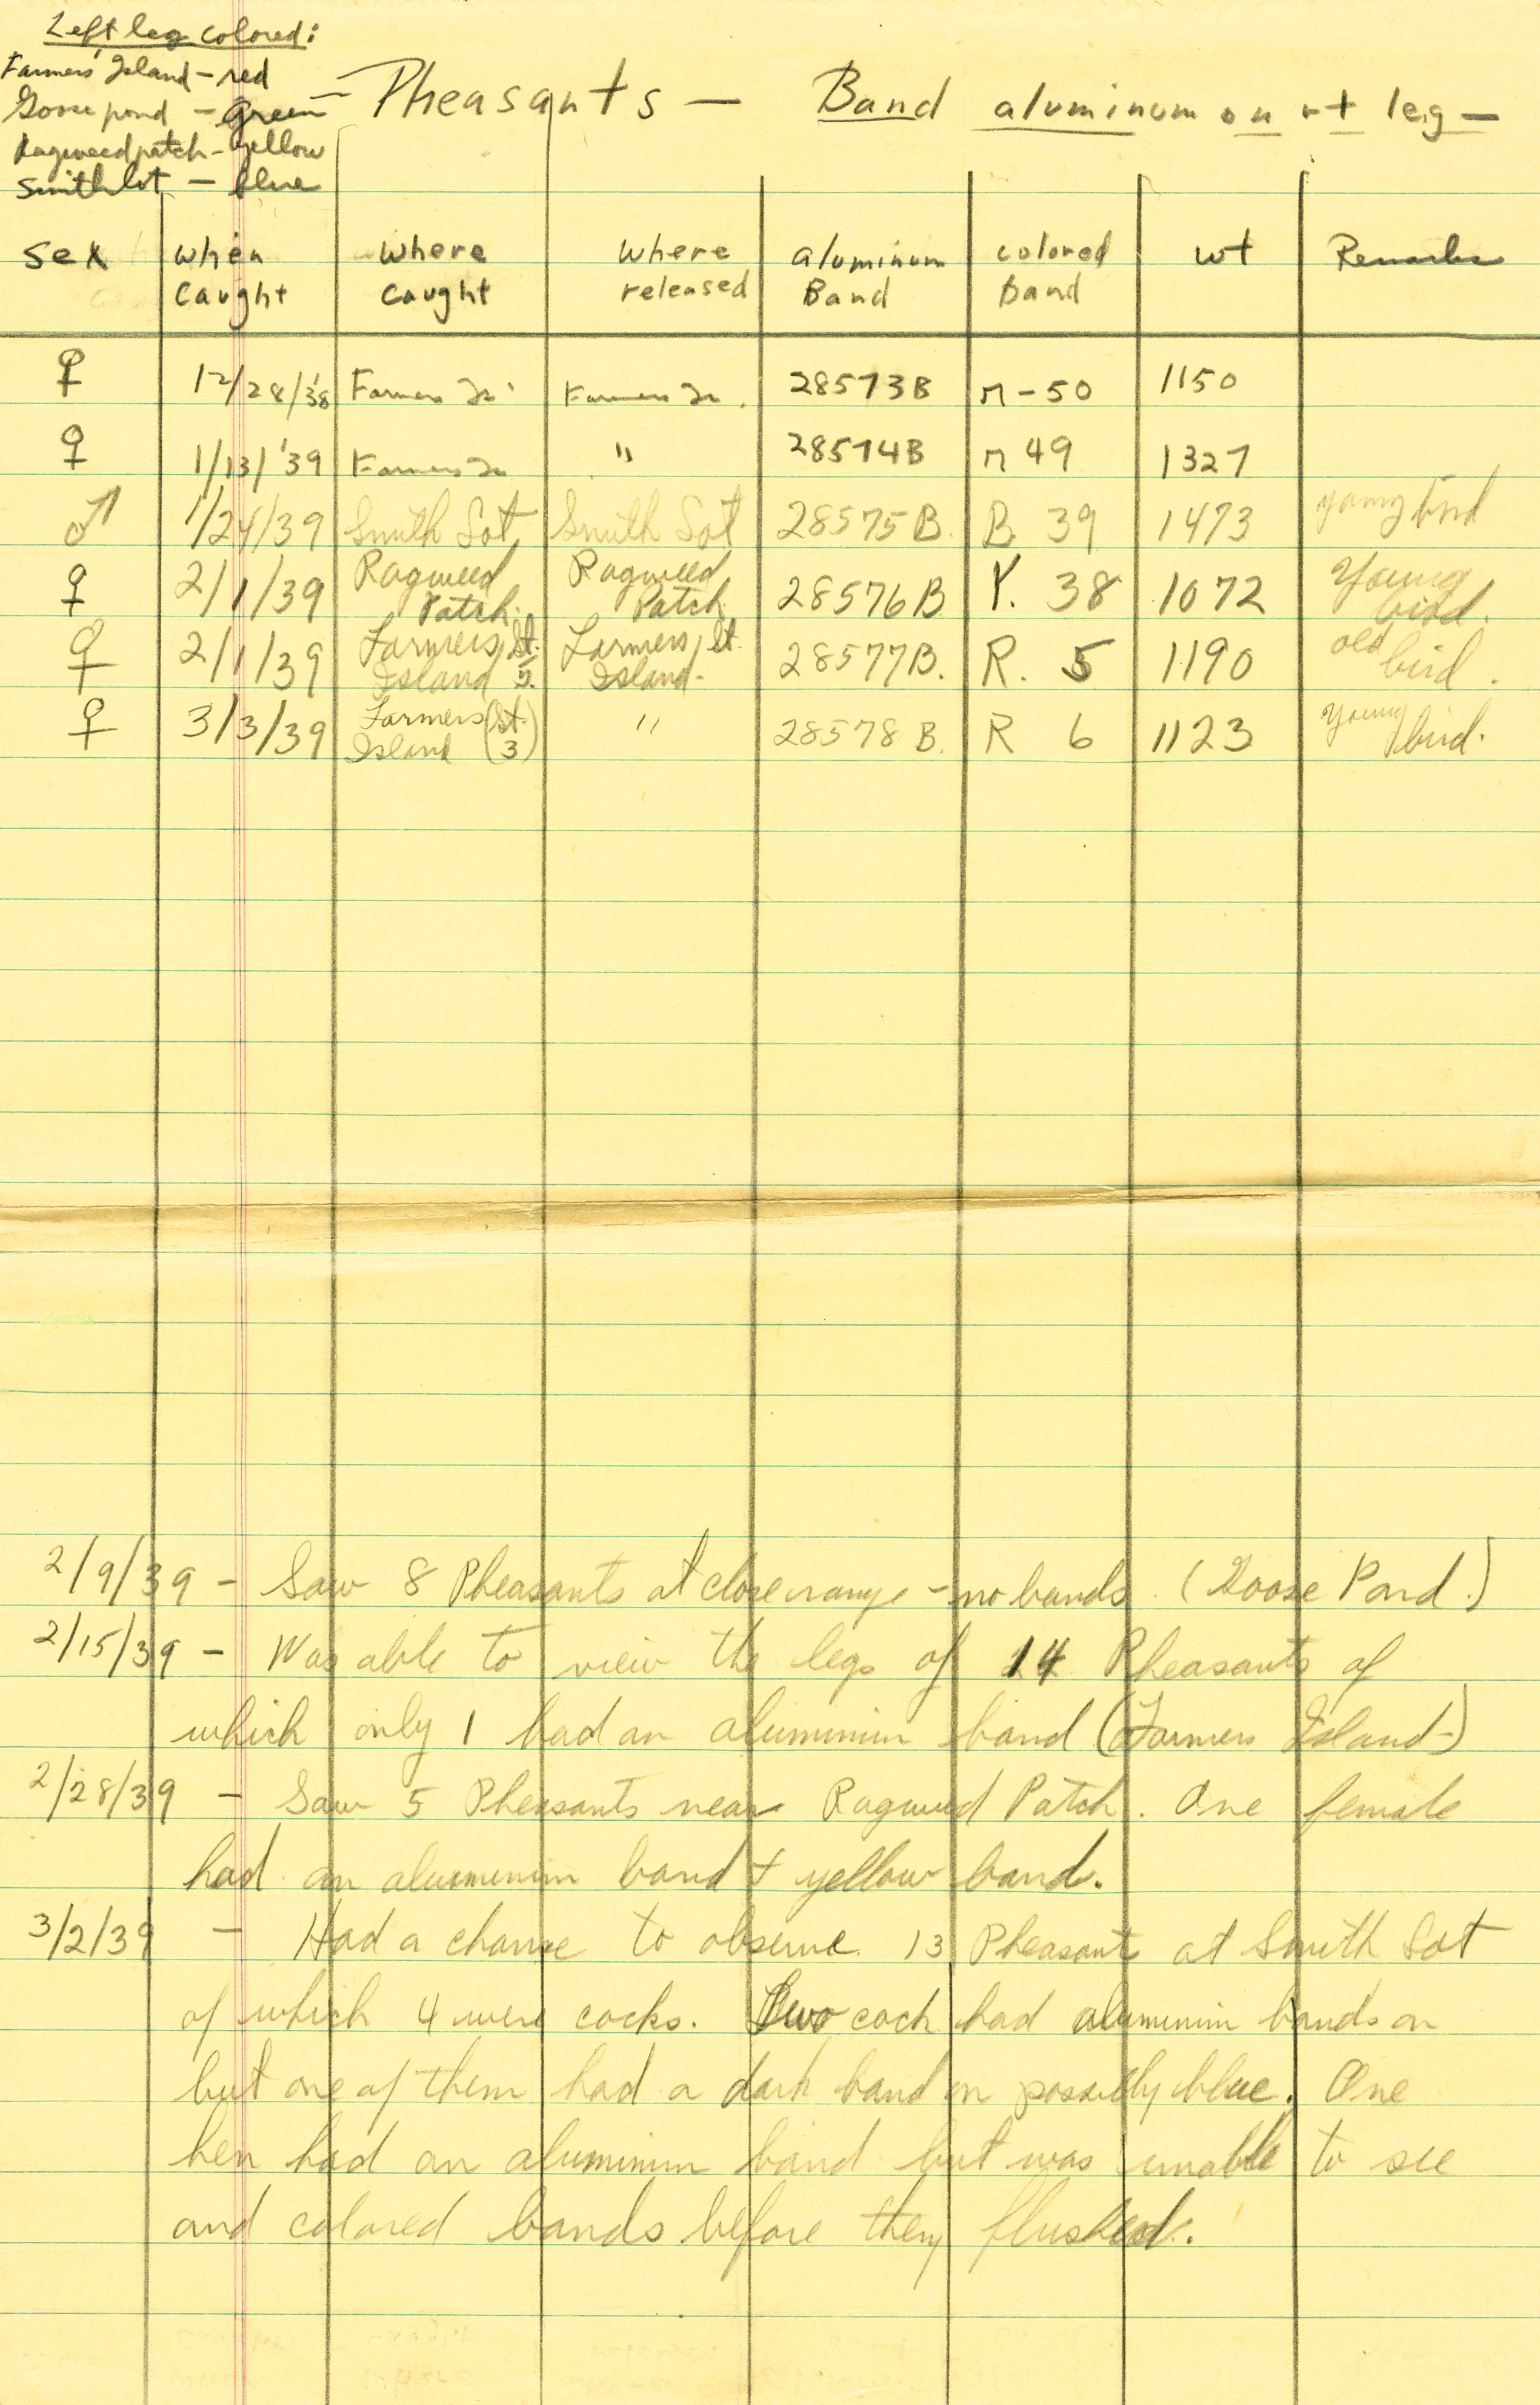 Left leg colored:
Farmers' Island - red
Goose pond - Green
Ragweed patch - yellow
Smith lot - blue
- Pheasants - Band aluminum on rt leg -
sex when caught where caught where released aluminum Band colored band wt Remarks
♀ 12/28/'38 Farmers Is. Farmers Is. 28573B r-50 1150
♀ 1/13/'39 Farmers Is " 28574B r 49 1327
♂ 1/24/39 Smith Lot Smith Lot 28575 B. B. 39 1473 young bird
♀ 2/1/39 Ragweed Patch. Ragweed Patch. 28576 B Y. 38 1072 Young bird.
♀ 2/1/39 Farmers Island St. 5. Farmers Island. St. 28577 B. R. 5 1190 old bird.
♀ 3/3/39 Farmers Island (St. 3) " 28578 B. R 6 1123 young bird.
2/9/39 - Saw 8 Pheasants at close range - no bands. (Goose Pond.)
2/15/39 - Was able to view the legs of 14 Pheasants of
which only 1 had an aluminim band (Farmers Island-)
2/28/39 - Saw 5 Pheasants near Ragweed Patch. One female
had an alumenim band + yellow band.
3/2/39 - Had a chance to observe 13 Pheasants at Smith Lot
of which 4 were cocks. Two cock had aluminim bands on
but one of them had a dark band on possibly blue. One
hen had an aluminim band but was unable to see
and colored bands before they flushed.